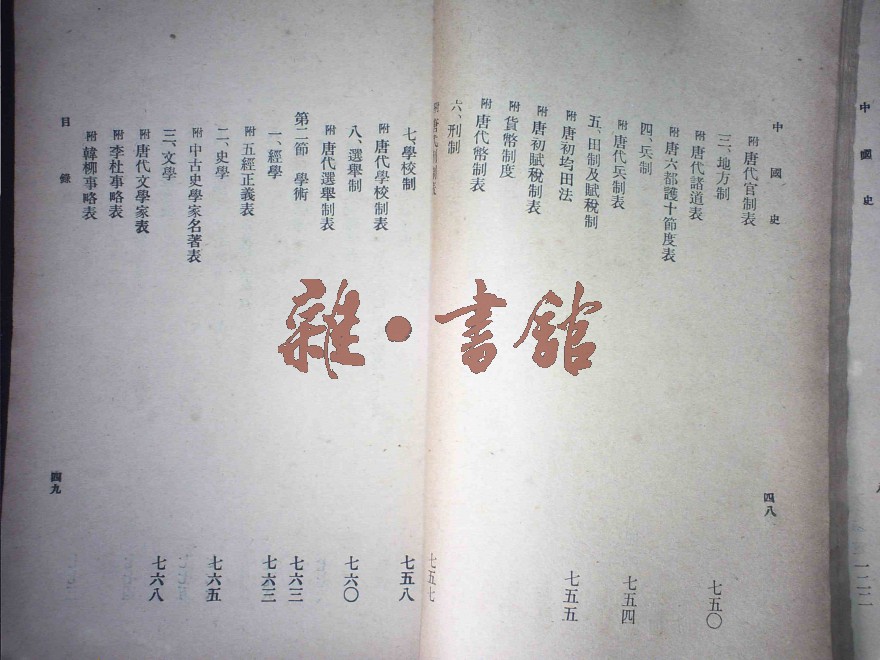 中國史
附 唐代官制表
三、地方制 七五〇
附 唐代諸道表
附 唐六都護十節度表
四、兵制 七五四
附 唐代兵制表
五、田制及賦稅制 七五五
附 唐初均田法
附 唐初賦稅制表
附 貨幣制度
附 唐代幣制表
六、刑制 七五七
七、學校制 七五八
附 唐代學校制表
八、選舉制 七六〇
附 唐代選舉制表
第二節 學術 七六三
一、經學 七六三
附 五經正義表
二、史學 七六五
附 中古史學家名著表
三、文學 七六八
附 唐代文學家表
附 李杜事略表
附 韓柳事略表
目錄
四八
四九
中國史
雜·書館